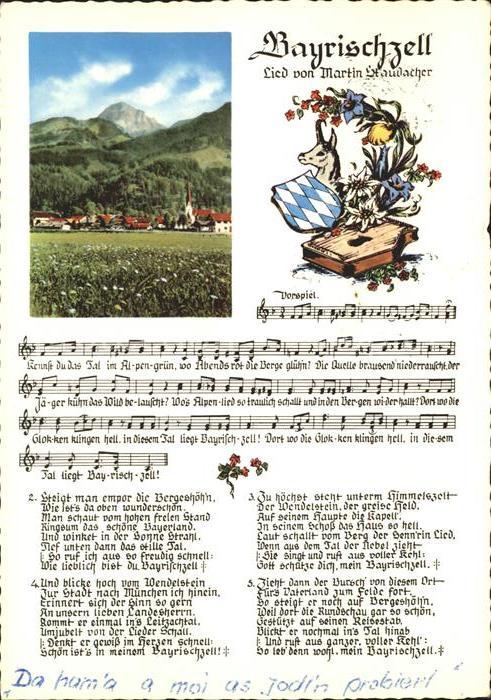 Bayrischzell
Lied von Martin Staudacher
Vorspiel.
Kennst du das Tal im Al-pen-grün, wo Abends rot die Berge glühn? Die Quelle brausend niederrauscht, der
Jä-ger kühn das Wild be-lauscht? Wo's Alpen-lied so traulich schallt und in den Ber-gen wi-der hallt? Dort wo die
Glok-ken klingen hell, in diesem Tal liegt Bayrisch-zell! Dort wo die Glok-ken klingen hell, in die-sem
Tal liegt Bay-risch-zell!
2. Steigt man empor die Bergeshöh'n,
Wie ist's da oben wunderschön.
Man schaut vom hohen freien Stand
Ringsum das schöne Bayerland.
Und winket in der Sonne Strahl,
Tief unten dann das stille Tal,
|: So ruf ich aus so freudig schnell:
Wie lieblich bist du Bayrischzell :|
3. Zu höchst steht unterm Himmelszelt
Der Wendelstein, der greise Held.
Auf seinem Haupte die Kapell',
In seinem Schoß das Haus so hell.
Laut schallt vom Berg der Senn'rin Lied,
Wenn aus dem Tal der Nebel zieht
|: Sie singt und ruft aus voller Kehl:
Gott schütze dich, mein Bayrischzell. :|
4. Und blicke hoch vom Wendelstein
Zur Stadt nach München ich hinein,
Erinnert sich der Sinn so gern
An unsern lieben Landesherrn.
Kommt er einmal in's Leitzachtal,
Umjubelt von der Lieder Schall.
|: Denkt er gewiß im Herzen schnell:
Schön ist's in meinem Bayrischzell! :|
5. Zieht dann der Bursch' von diesem Ort
Für's Vaterland zum Felde fort.
So steigt er noch auf Bergeshöhn,
Weil dort die Rundschau gar so schön,
Gestützt auf seinen Reisestab,
Blickt er nochmal in's Tal hinab
|: Und ruft aus ganzer, voller Kehl':
So leb' denn wohl, mein Bayrischzell. :|
"Da ham'a a moi as Jodl'n probiert"